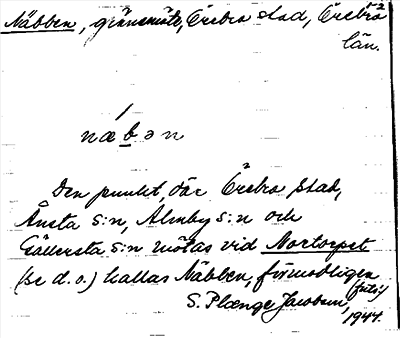 Näbben, gränsmöte, Örebro stad, Örebro
län.
næbən
Den punkt, där Örebro stad,
Ånsta s:n, Almby s:n och
Gällersta s:n mötas vid Norrtorpet
(se d.o.) kallas Näbben, förmodligen
S. Plænge Jacobson,
1944.